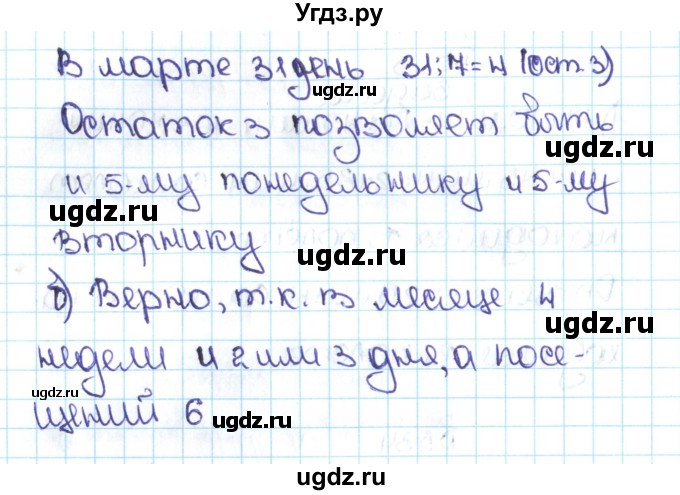 Угдз.ру
В марте 31 день 31:7=4 (ост. 3)
ugdz.ru
Остаток 3 позволяет быть
ugdz.ru
и 5-му понедельнику и 5-му
ugdz.ru
вторнику
ugdz.ru
б) Верно, т.к. в месяце 4
ugdz.ru
недели и 2 или 3 дня, а посе-
ugdz.ru
щений 6
ugdz.ru
ugdz.ru